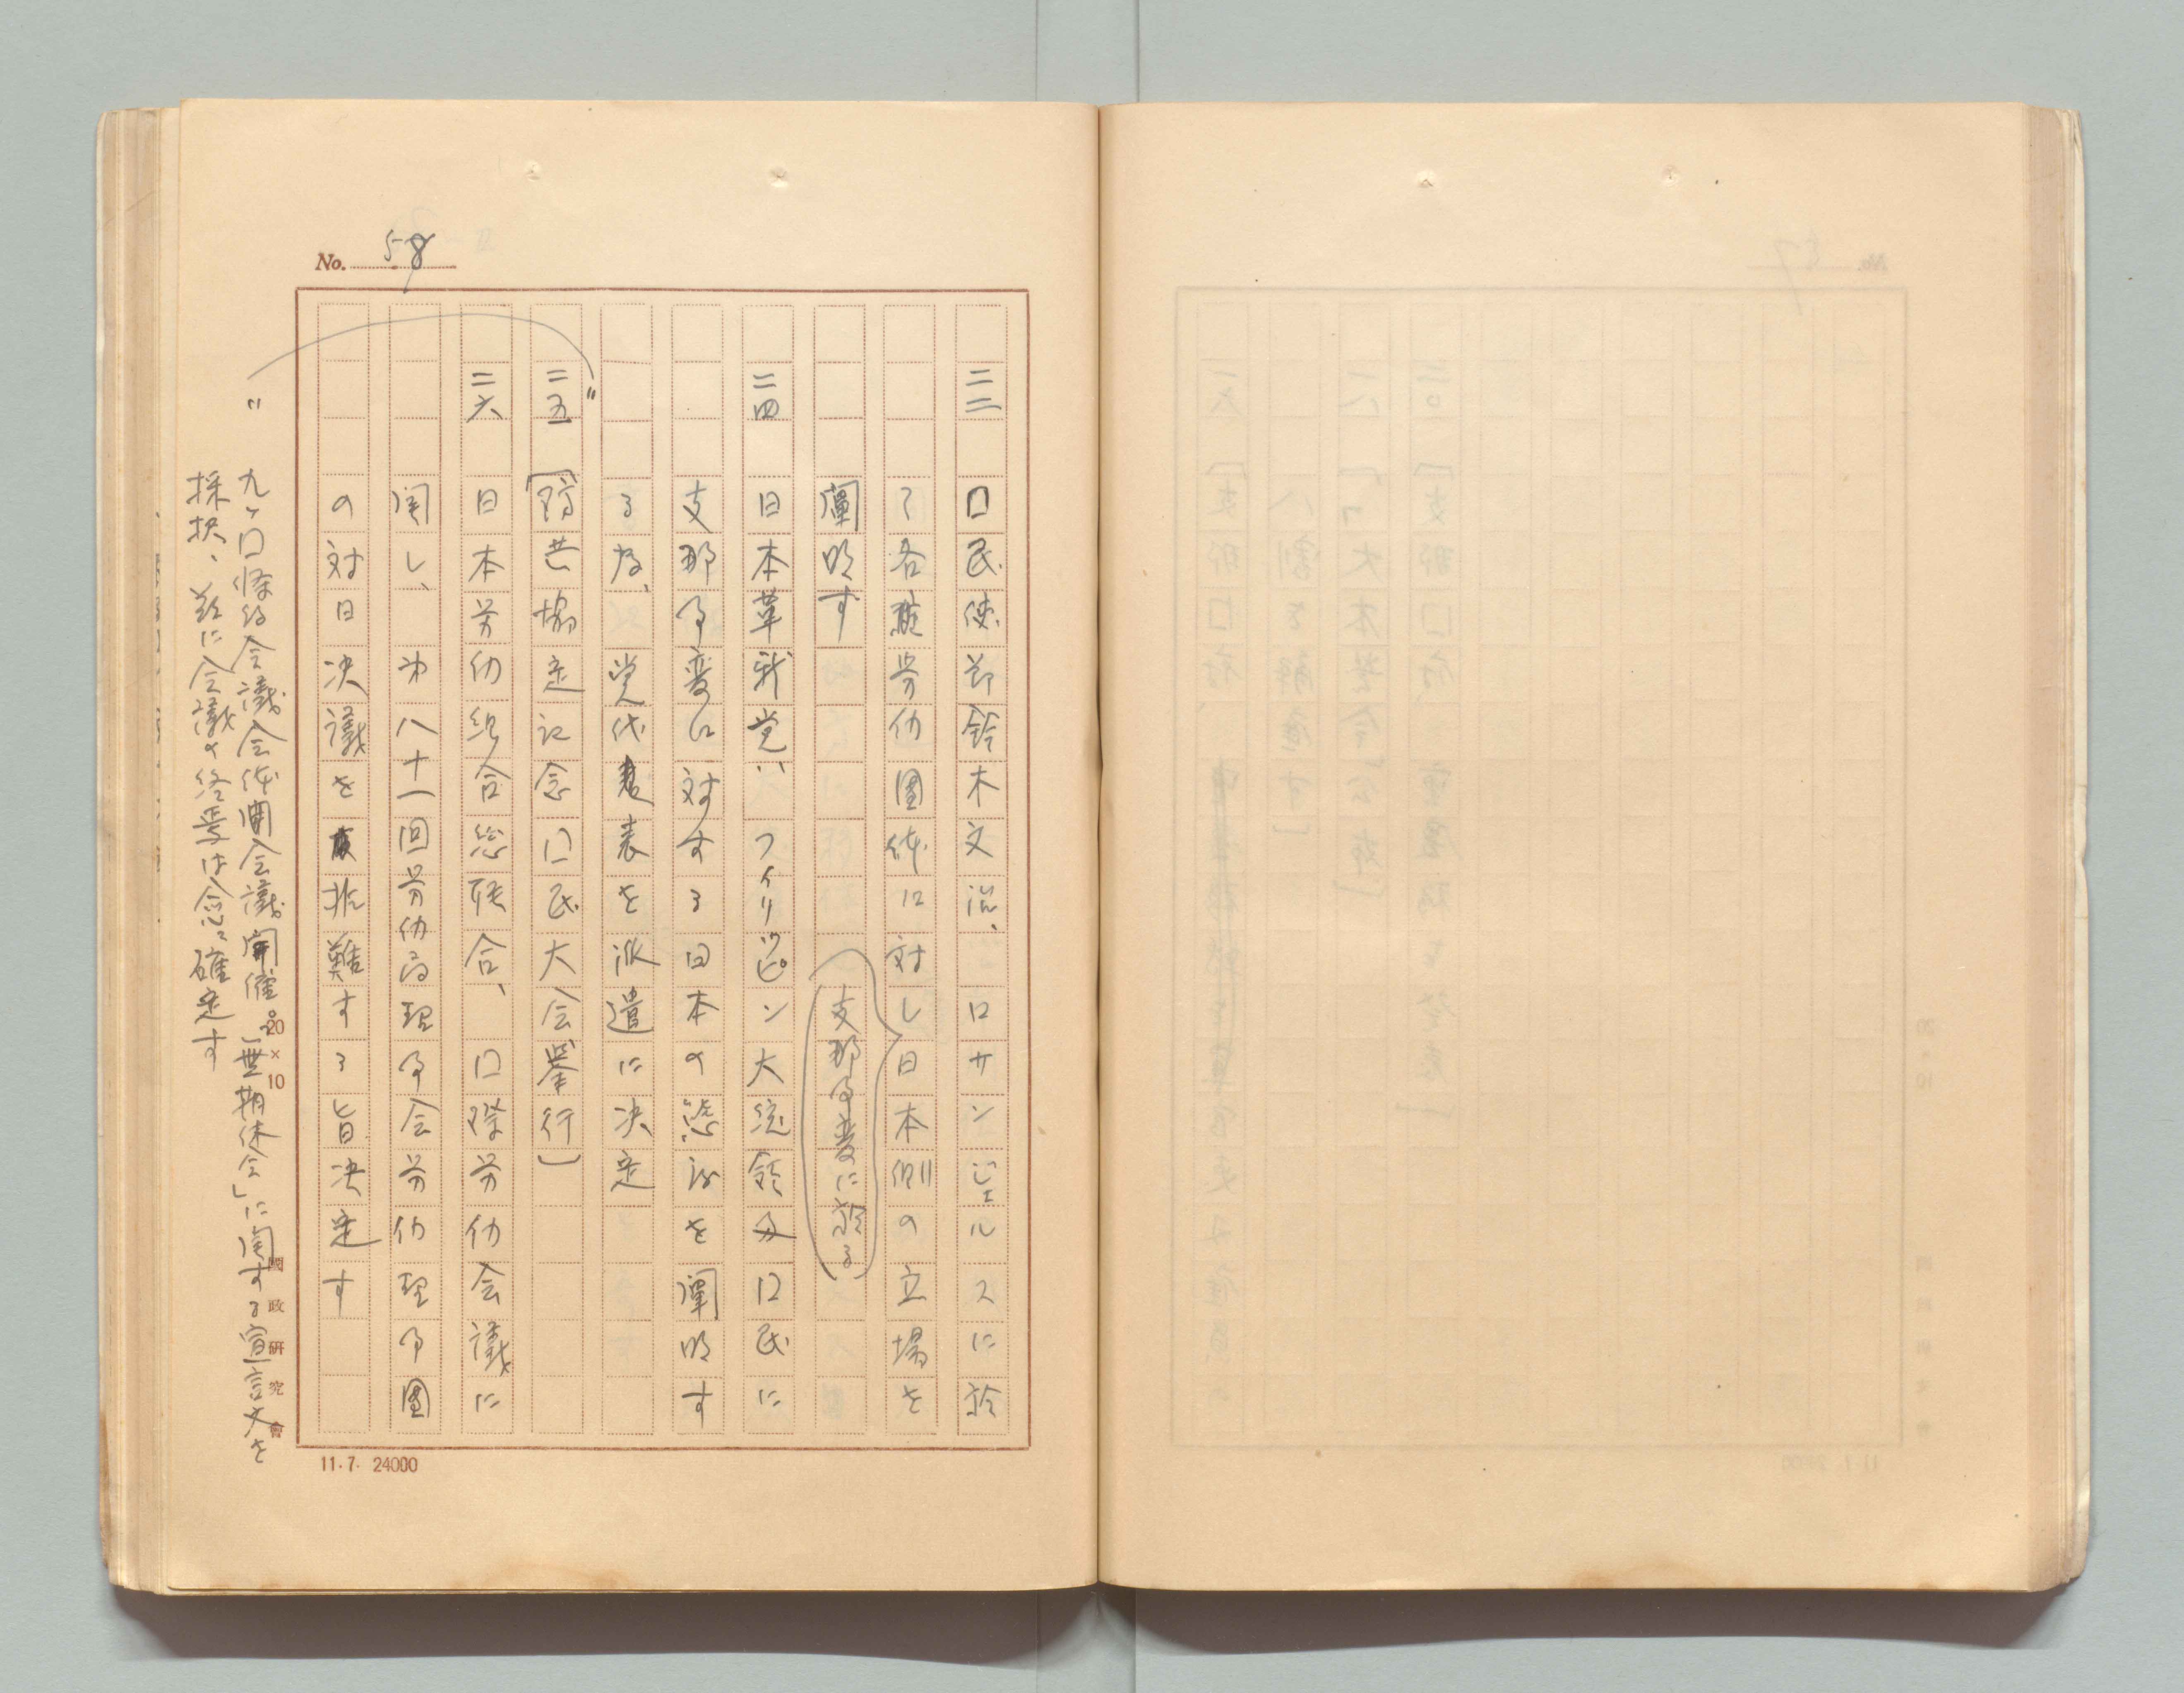 No. 58
二二 口民使節鈴木文治、ロサンジェルスに於
て各種労仂団体に対し日本側の立場を
闡明す
(支那事変に於る)
二四 日本革新党、フィリッピン大統領及口民に
支那事変に対する日本の態度を闡明す
る為、党代表を派遣に決定
二五 「防共協定記念口民大会挙行」
二六 日本労仂組合総聯合、口際労仂会議に
関し、第八十一回労仂局理事会労仂理事団
の対日決議を非難する旨決定す
〃 九ヶ口條約会議会体開会議開催。「無期休会」に関する宣言文を
採択、茲に会議の終焉は愈々確定す
20×10
國政研究會
11.7. 24000